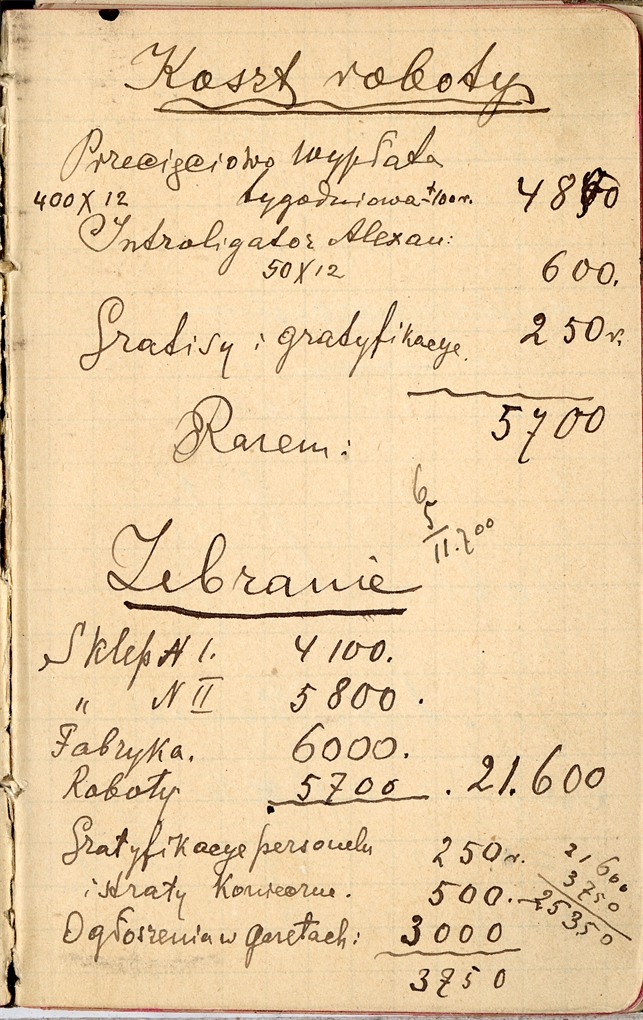 Koszt roboty
Przecięciowo wypłata
400 X 12 tygodniowa 100 r. 4850
Introligator Alexan:
50 X 12 600.
Gratisy i gratyfikacye 250 r.
5700
Razem:
6
5
11.700
Zebranie
Sklep N 1. 4100.
" N II 5800.
Fabryka. 6000.
Roboty. 5700. 21.600
Gratyfikacye personelu 250 r.
i straty konieczne. 500.
Ogłoszenia w gazetach: 3000
3750
21600
3750
25350